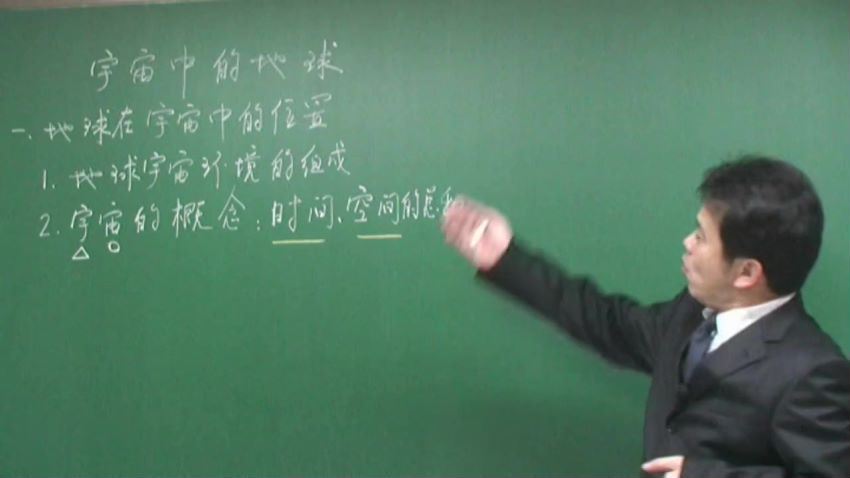 宇宙中的地球
一、地球在宇宙中的位置
1. 地球宇宙环境的组成
2. 宇宙的概念：时间、空间的总